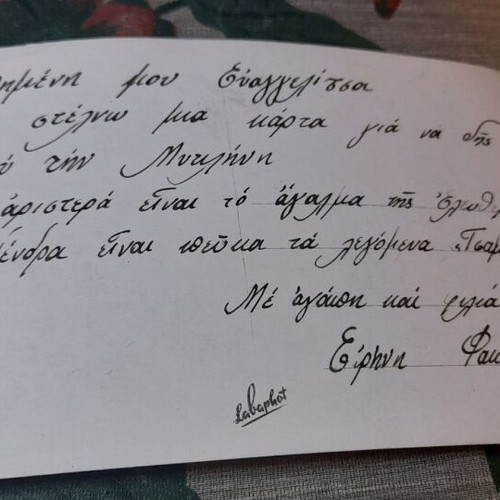 ημένη μου Εὐαγγελίτσα
στέλνω μια κάρτα γιά να δῆς
ύ την Μυτιλήνη
ἀριστερά εἶναι τό ἄγαλμα τῆς ἐλευθ
ένδρα εἶναι πεῦκα τά λεγόμενα "Τσαμ
Μέ ἀγάπη καί φιλιά
Εἰρήνη Φακ
Labaphot